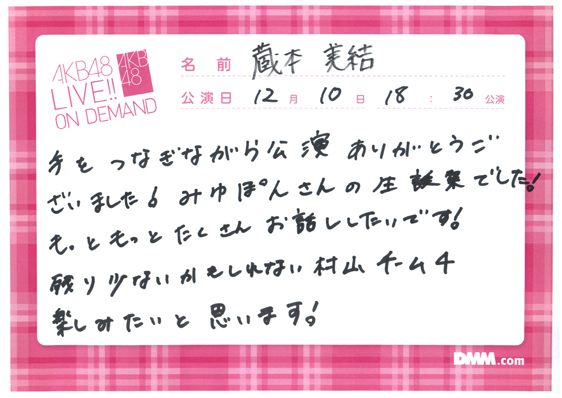 AKB48
LIVE!!
ON DEMAND
AKB
48
名前 蔵本 美結
公演日 12月 10日 18:30 公演
手をつなぎながら公演 ありがとうご
ざいました! みゆぽんさんの生誕祭でした!
もっともっとたくさんお話ししたいです!
残り少ないかもしれない村山チーム4
楽しみたいと思います!
DMM.com